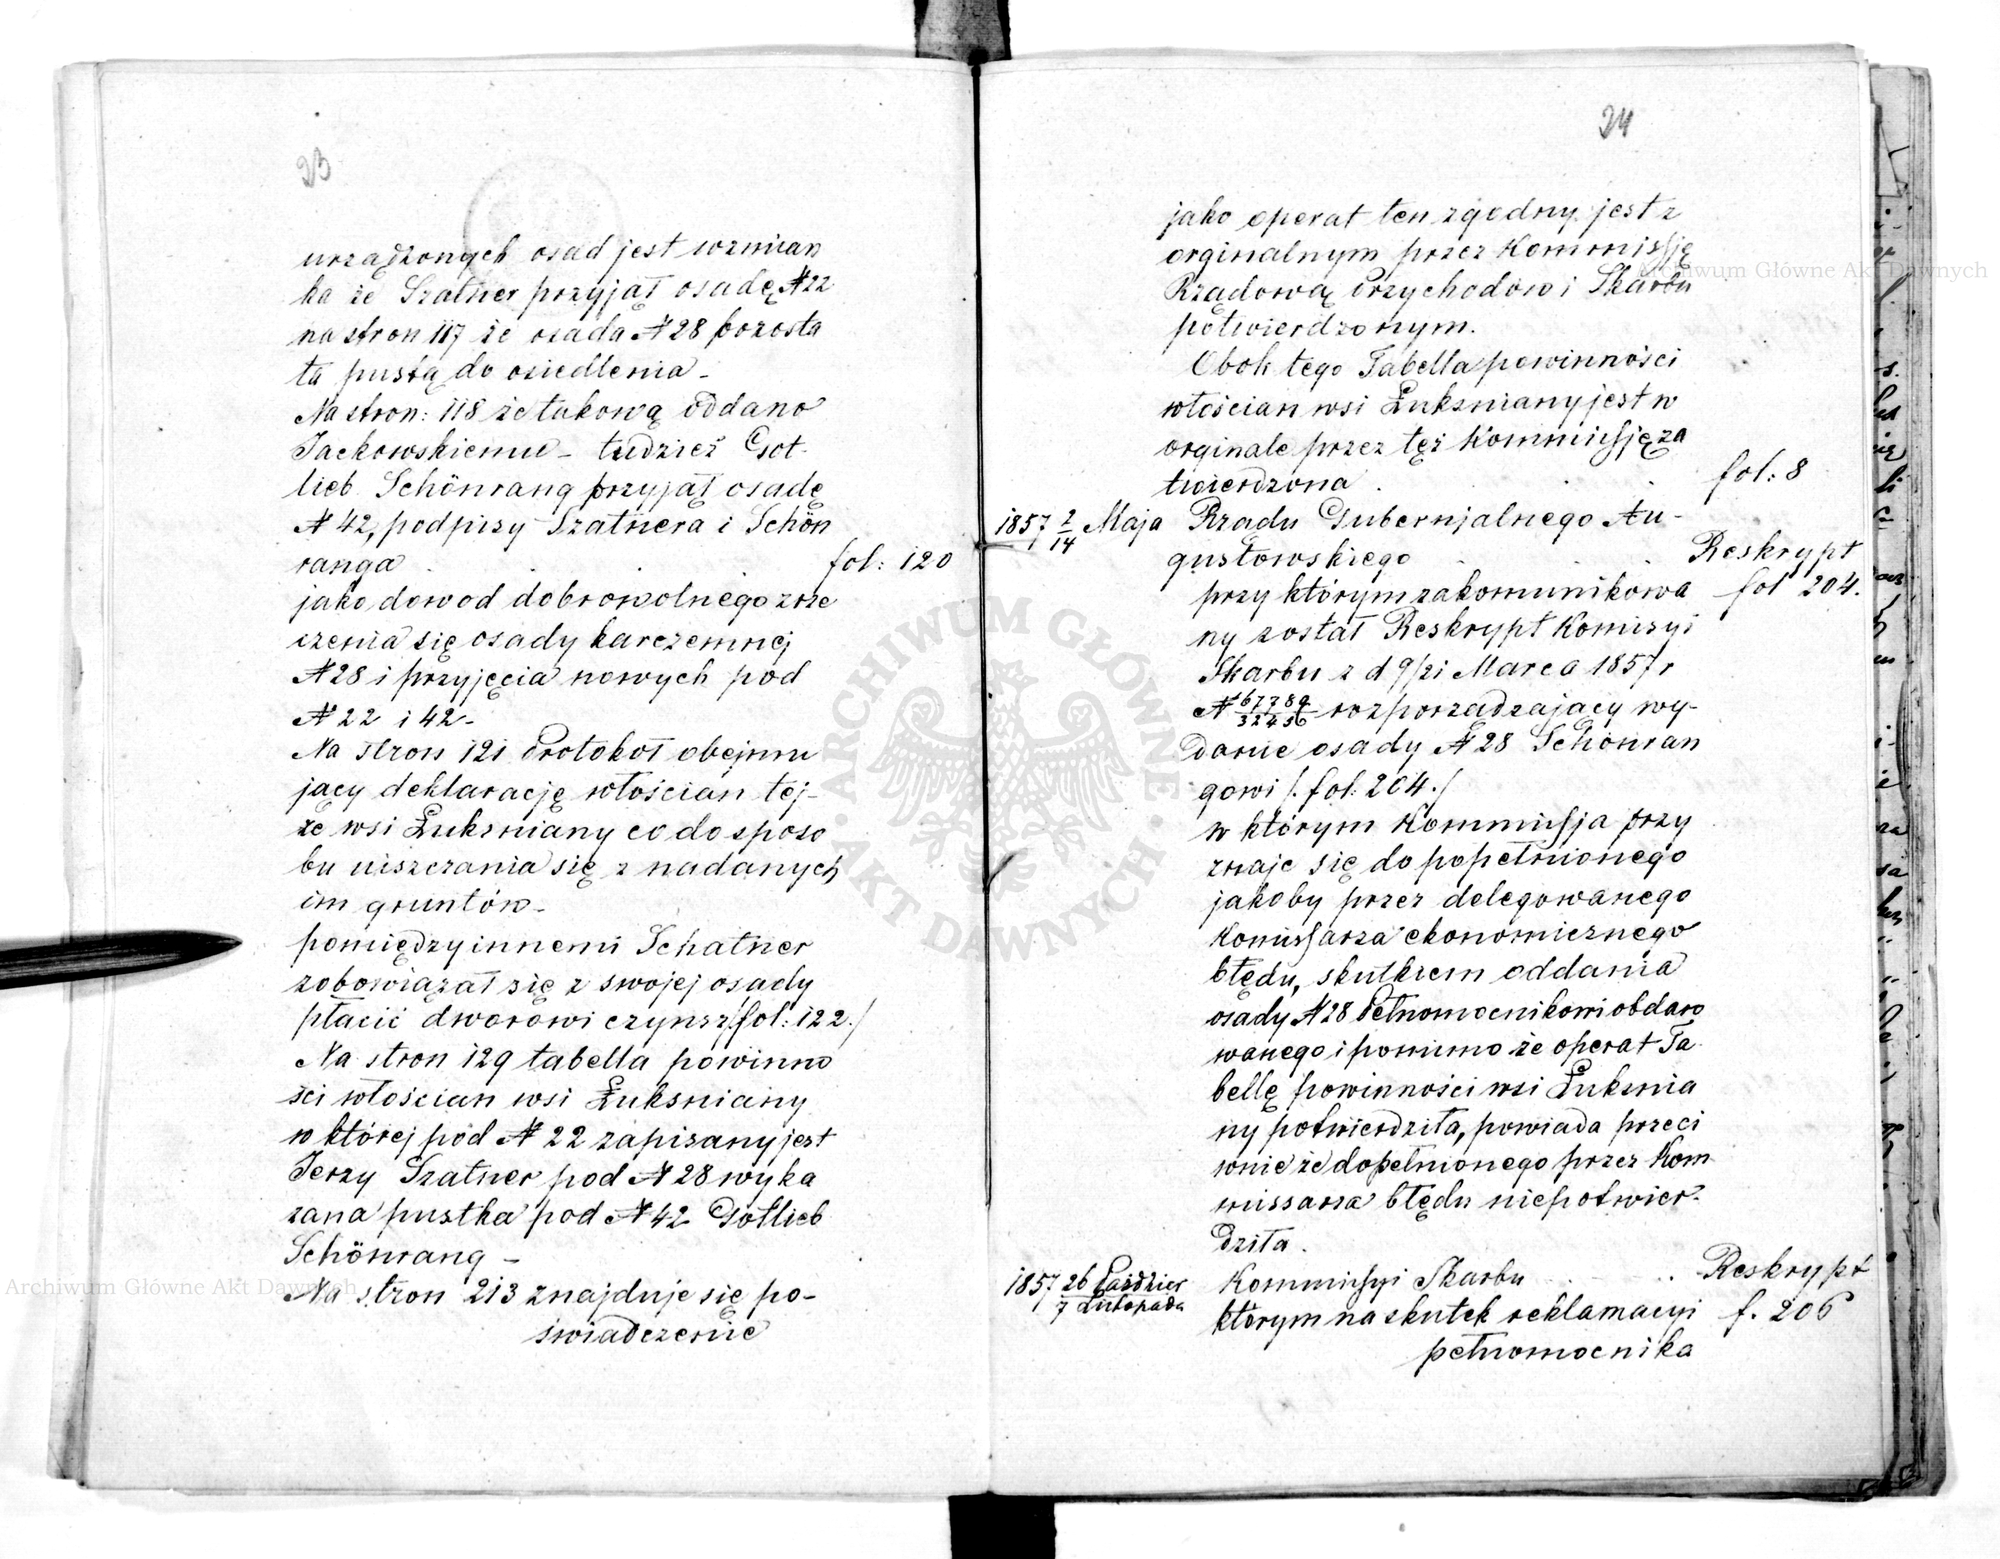 23
urządzonych osad jest wzmian
ka że Szatner przyjął osadę № 22
na stron 117 że osada № 28 pozosta
ła pustą do osiedlenia -
Na stron: 118 że takową oddano
Jackowskiemu - tudzież Got-
lieb Schönrang przyjął osadę
№ 42, podpisy Szatnera i Schön
ranga . . . fol: 120
jako dowod dobrowolnego zrze
czenia się osady karczemnej
№ 28 i przyjęcia nowych pod
№ 22 i 42 -
Na stron 121 Protokół obejmu
jący deklarację włościan tej-
że wsi Łuksniany co do sposo
bu uiszczania się z nadanych
im gruntów -
pomiędzy innemi Schatner
zobowiązał się z swojej osady
płacić dworowi czynsz /fol: 122./
Na stron 129 tabella powinno
ści włościan wsi Łuksniany
w której pod № 22 zapisany jest
Jerzy Szatner pod № 28 wyka
zana pustka pod № 42 Gotlieb
Schönrang -
Na stron 213 znajduje się po-
świadczenie
24
jako operat ten zgodny jest z
orginalnym przez Kommissję
Rządową Przychodów i Skarbu
potwierdzonym.
Obok tego Tabella powinności
włościan wsi Łuksniany jest w
orginale przez tęż Kommissję za
twierdzona . . . fol: 8
1857 2/14 Maja Rządu Gubernjalnego Au-
gustowskiego . . . Reskrypt
przy którym zakomunikowa fol 204.
ny został Reskrypt Komisyi
Skarbu z d 9/21 Marca 1857 r
№ 67789/32456 rozporządzający wy-
danie osady № 28 Schönran
gowi /. fol: 204./
w którym Kommissja przy
znaje się do popełnionego
jakoby przez delegowanego
Komissarza ekonomicznego
błędu, skutkiem oddania
osady № 28 Pełnomocnikowi obdaro
wanego i pomimo że operat Ta
bellę powinności wsi Łuksnia
ny potwierdziła, powiada przeci
wnie że dopełnionego przez Kom
missarza błędu niepotwier-
dziła .
1857 26 Paździer/7 Listopada Kommissyi Skarbu . . . Reskrypt
którym na skutek reklamacyi f. 206
pełnomocnika
Archiwum Główne Akt Dawnych
Archiwum Główne Akt Dawnych
ARCHIWUM GŁÓWNE AKT DAWNYCH